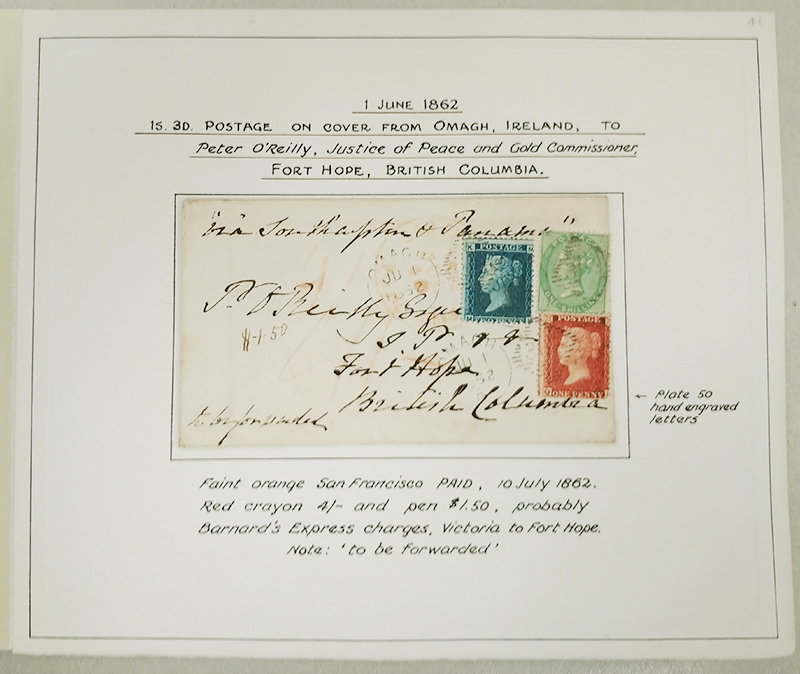 41
1 JUNE 1862
1S. 3D. POSTAGE ON COVER FROM OMAGH, IRELAND, TO
Peter O'Reilly, Justice of Peace and Gold Commissioner,
FORT HOPE, BRITISH COLUMBIA.
"via Southampton & Panama"
OMAGH
JU 1
1862
POSTAGE
TWO PENCE
ONE SHILLING
P. O'Reilly Esqr
$-1-50
J P
OMAGH
JU 1
62
POSTAGE
ONE PENNY
Fort Hope
British Columbia
to be forwarded
← Plate 50
hand engraved
letters
Faint orange San Francisco PAID, 10 July 1862.
Red crayon 4/- and pen $1.50, probably
Barnard's Express charges, Victoria to Fort Hope.
Note: 'to be forwarded'